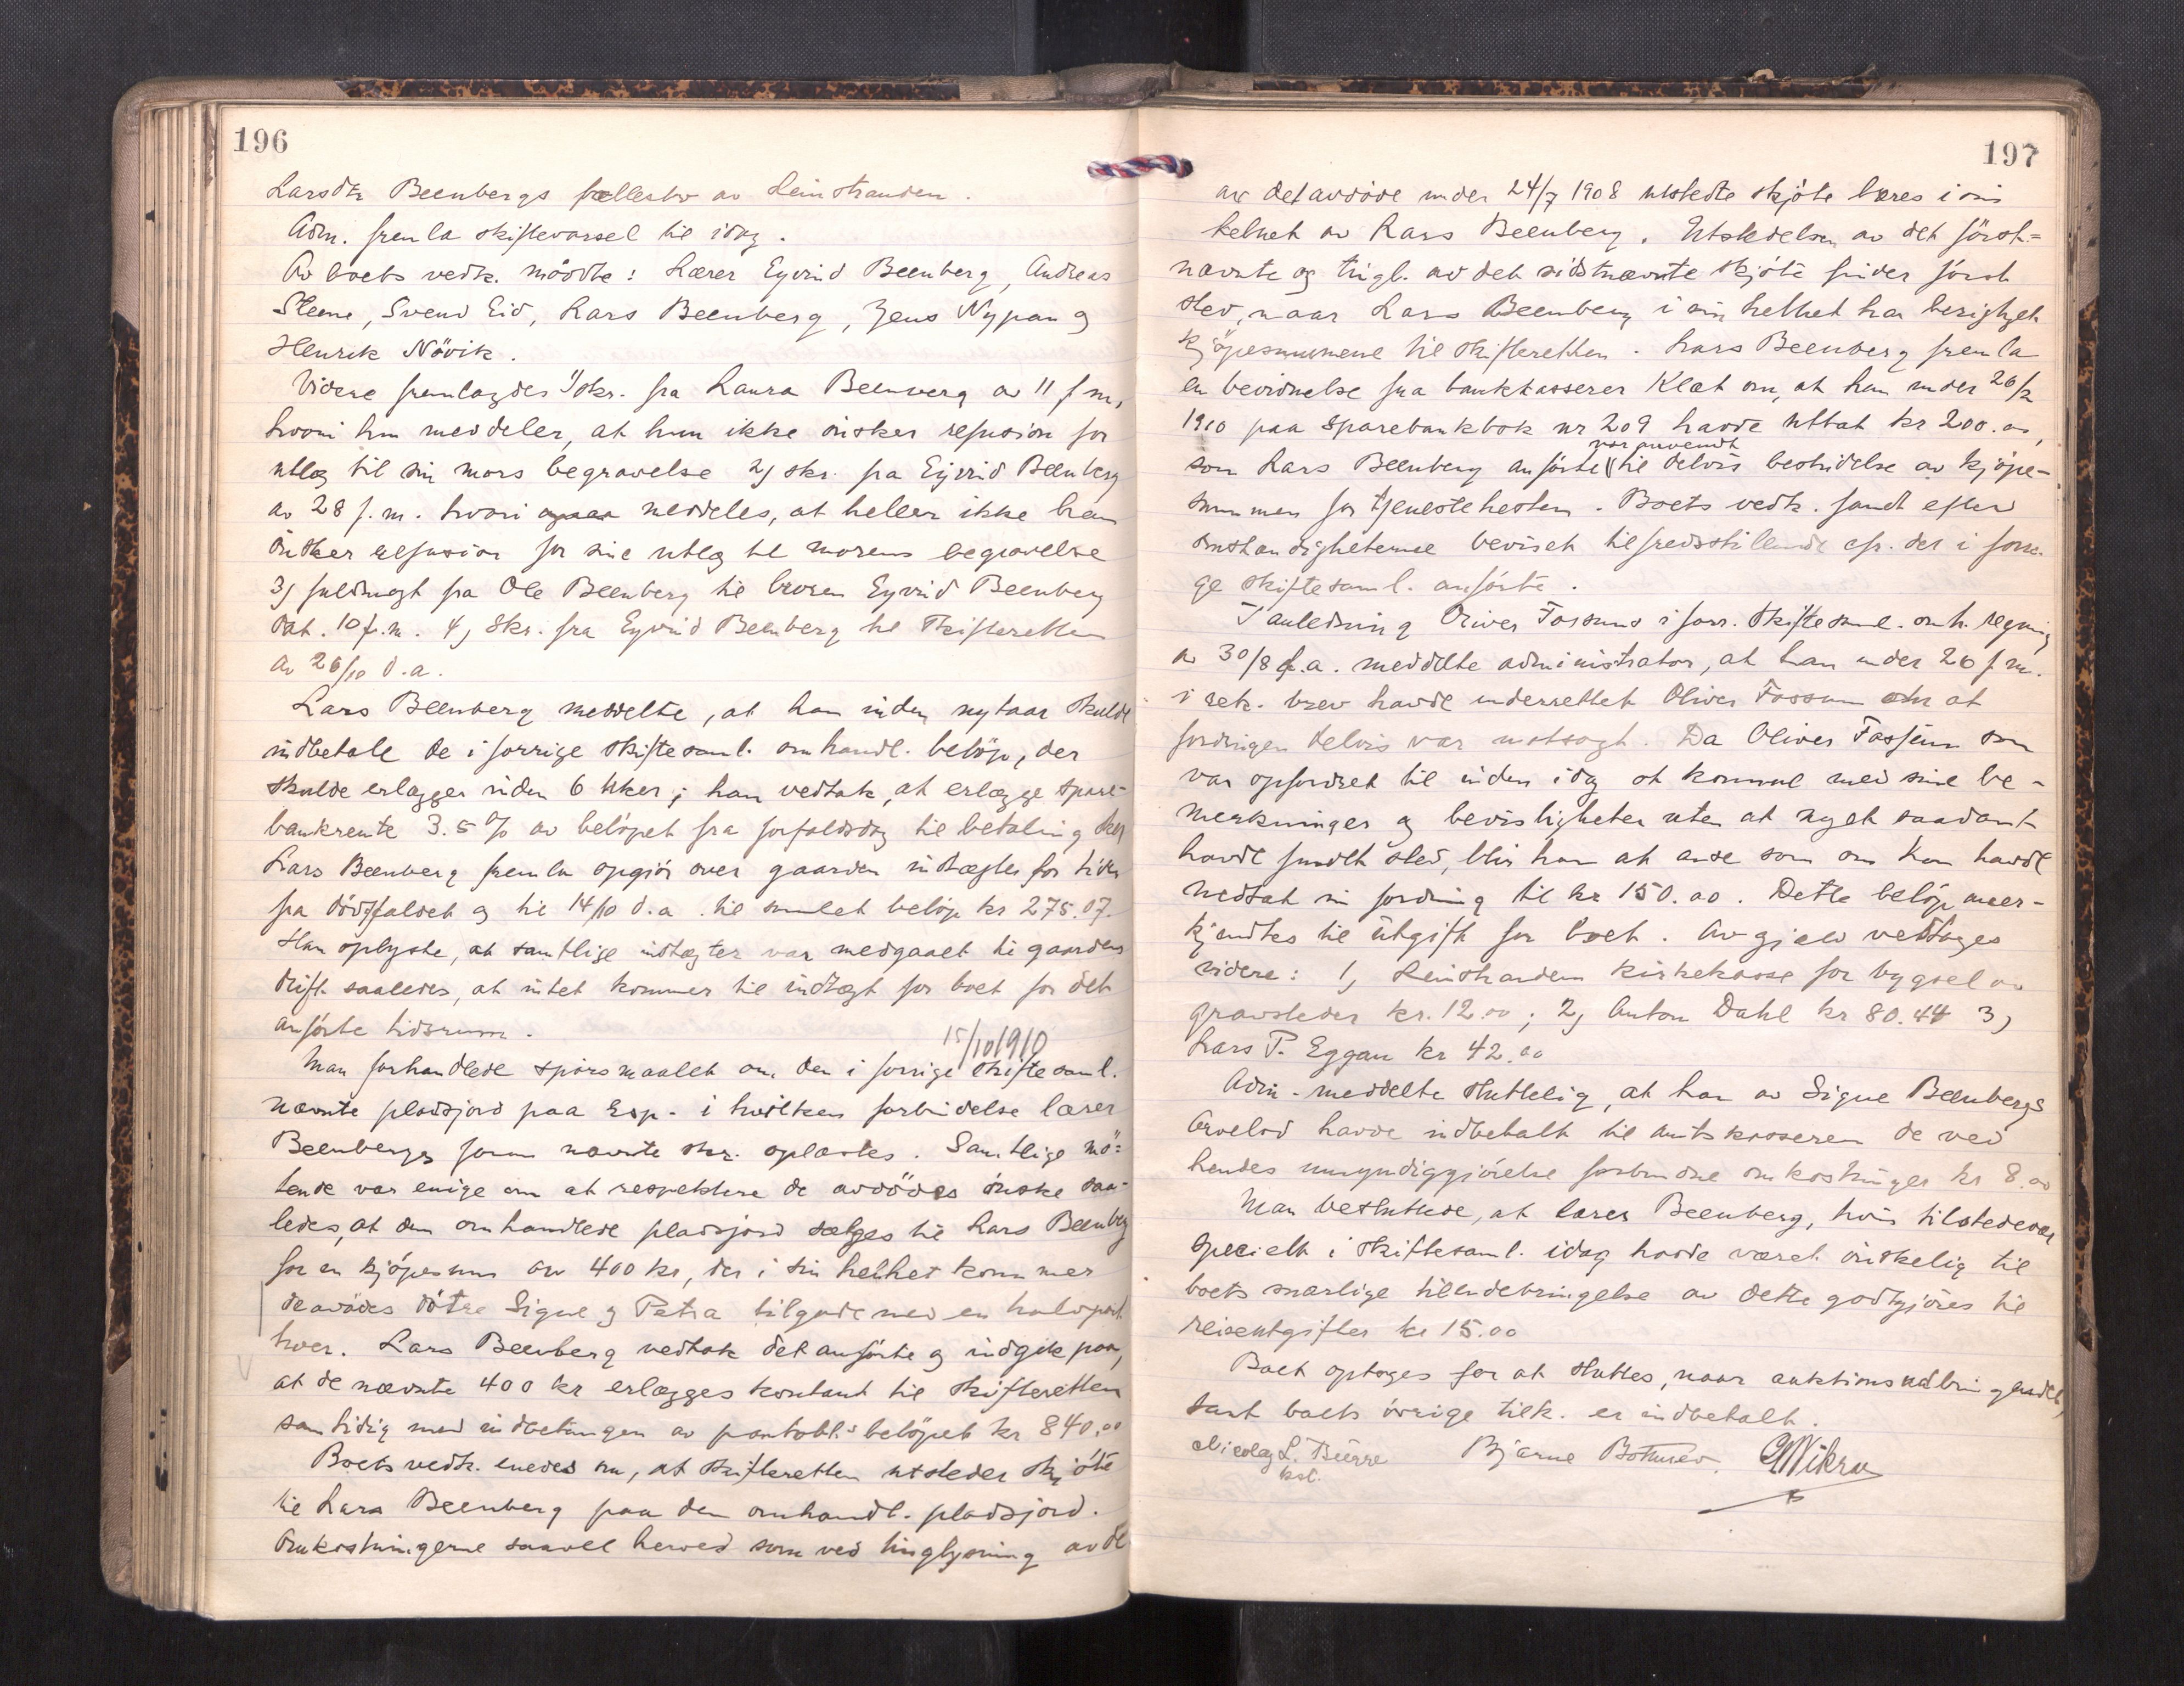 196
Larsdtr Beenbergs fællesbo av Leinstranden.
Adm. fremla skiftevarsel til idag.
Av boets vedk. möödte: Lærer Eyvind Beenberg, Andreas
Steene, Svend Eid, Lars Beenberg, Jens Nypan og
Henrik Növik.
Videre fremlagdes 1) skr. fra Laura Beenberg av 11 f.m,
hvori hun meddeler, at hun ikke önsker refusion for
utlæg til sin mors begravelse 2) skr. fra Eyvind Beenberg
av 28 f.m. hvori meddeles, at heller ikke han
önsker refusion for sine utlæg til morens begravelse
3) fuldmagt fra Ole Beenberg til broren Eyvind Beenberg
dat. 10 f.m. 4) Skr. fra Eyvind Beenberg til Skifteretten
av 26/10 d.a.
Lars Beenberg meddelte, at han inden nytaar skulde
indbetale de i forrige skiftesaml. omhandl. belöp, der
skulde erlægges inden 6 uker; han vedtok, at erlægge spare-
bankrente 3.5 % av belöpet fra forfaldsdag til betaling sker
Lars Beenberg fremla opgjör over gaardens indtægter for tiden
fra dödsfaldet og til 14/10 d.a. til samlet belöp kr 275.07.
Han oplyste, at samtlige indtægter var medgaaet til gaardens
drift saaledes, at intet kommer til indtægt for boet for det
anförte tidsrum.
15/10 1910
Man forhandlede spörsmaalet om den i forrige skiftesaml.
nævnte pladsjord paa Esp. i hvilken forbindelse lærer
Beenbergs foran nævnte skr. oplæstes. Samtlige mö-
tende var enige om at respektere de avdödes önske saa-
ledes, at den omhandlede pladsjord sælges til Lars Beenberg
for en kjöpesum av 400 kr, der i sin helhet kommer
de avdödes dötre Signe og Petra tilgode med en halvpart
hver. Lars Beenberg vedtok det anförte og indgik paa,
at de nævnte 400 kr erlægges kontant til Skifteretten
samtidig med indbetalingen av pantobl.s belöpet kr 840.00
Boets vedk. enedes om, at Skifteretten utsteder skjöte
til Lars Beenberg paa den omhandl. pladsjord.
Omkostningerne saavel herved som ved tinglysning av de
197
av det avdöde under 24/7 1908 utstedte skjöte bæres i sin
helhet av Lars Beenberg. Utstedelsen av det först-
nævnte og tingl. av det sidstnævnte skjöte finder först
sted, naar Lars Beenberg i sin helhet har berigtiget
kjöpesummene til skifteretten. Lars Beenberg fremla
en bevidnelse fra bankkasserer Klæt om, at han under 26/2
1910 paa Sparebankbok nr 209 havde uttat kr 200.00,
som Lars Beenberg anförte var anvendt til delvis bestridelse av kjöpe-
summen for tjenestehesten. Boets vedk. fandt efter
omstændigheterne beviset tilfredsstillende cfr. det i forri-
ge skiftesaml. anförte.
I anledning Oliver Fossums i forr. skiftesaml. omh. regning
av 30/8 f.a. meddelte administrator, at han under 26 f.m.
i rek. brev havde underrettet Oliver Fossum om at
fordringen delvis var motsagt. Da Oliver Fossum som
var opfordret til inden idag at komme med sine be-
merkninger og bevisligheter uten at noget saadant
havde fundet sted, blir han at anse som om han havde
nedsat sin fordring til kr 150.00. Dette belöp aner-
kjendtes til utgift for boet. Av gjæld vedtoges
videre: 1) Leinstranden kirkekasse for bygsel av
gravsteder kr. 12.00; 2) Anton Dahl kr 80.44 3)
Lars P. Eggan kr 42.00
Adm. meddelte sluttelig, at han av Signe Beenbergs
Arvelod havde indbetalt til amtskasseren de ved
hendes umyndiggjörelse forbundne omkostninger kr 8.00
Man besluttede, at lærer Beenberg, hvis tilstedevær
specielt i skiftesaml. idag havde været önskelig til
boets snarlige tilendebringelse av dette godtgjöres til
reiseutgifter kr 15.00
Boet optoges for at sluttes, naar auktionsutbringendet,
samt boets övrige tilk. er indbetalt.
Nicolay L. Bierre Bjarne
kst.